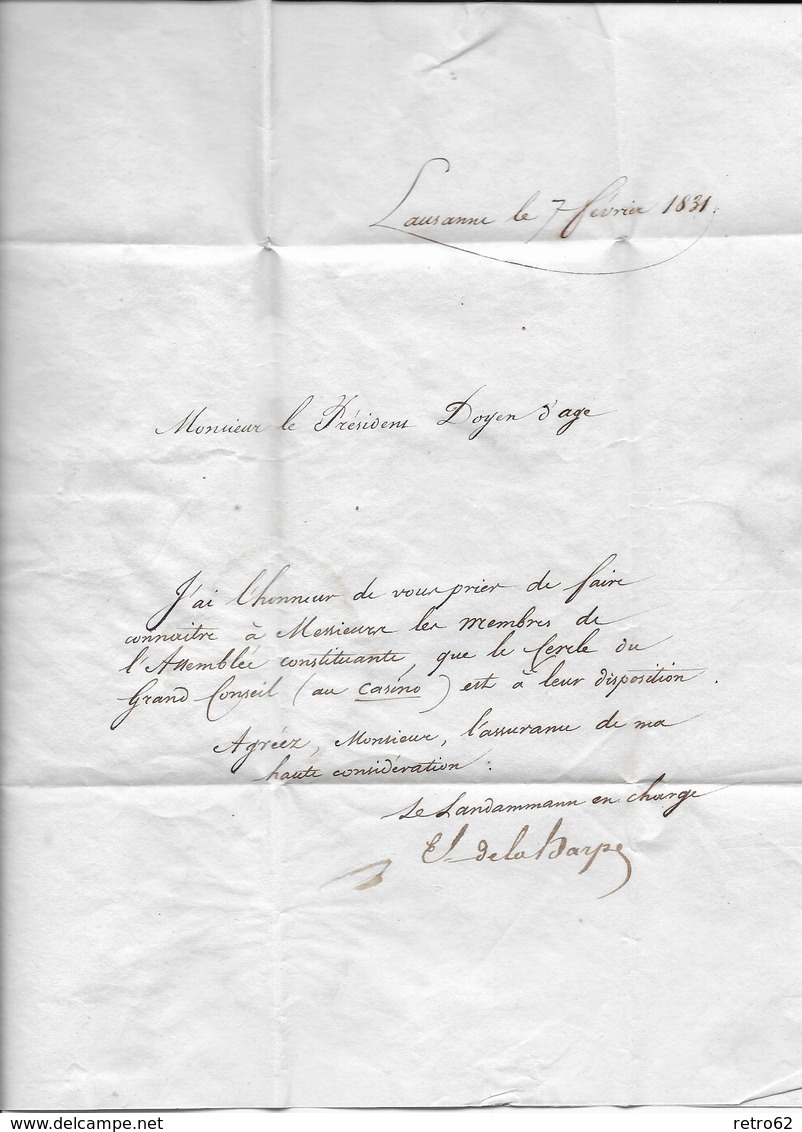 Lausanne le 7 février 1831.
Monsieur le Président Doyen d'age
J'ai l'honneur de vous prier de faire
connaitre à Messieurs les membres de
l'Assemblée constituante, que le Cercle du
Grand Conseil (au casino) est à leur disposition.
Agréez, Monsieur, l'assurance de ma
haute considération.
Le Landammann en charge
El de la Harpe
delcampe.net
retro62